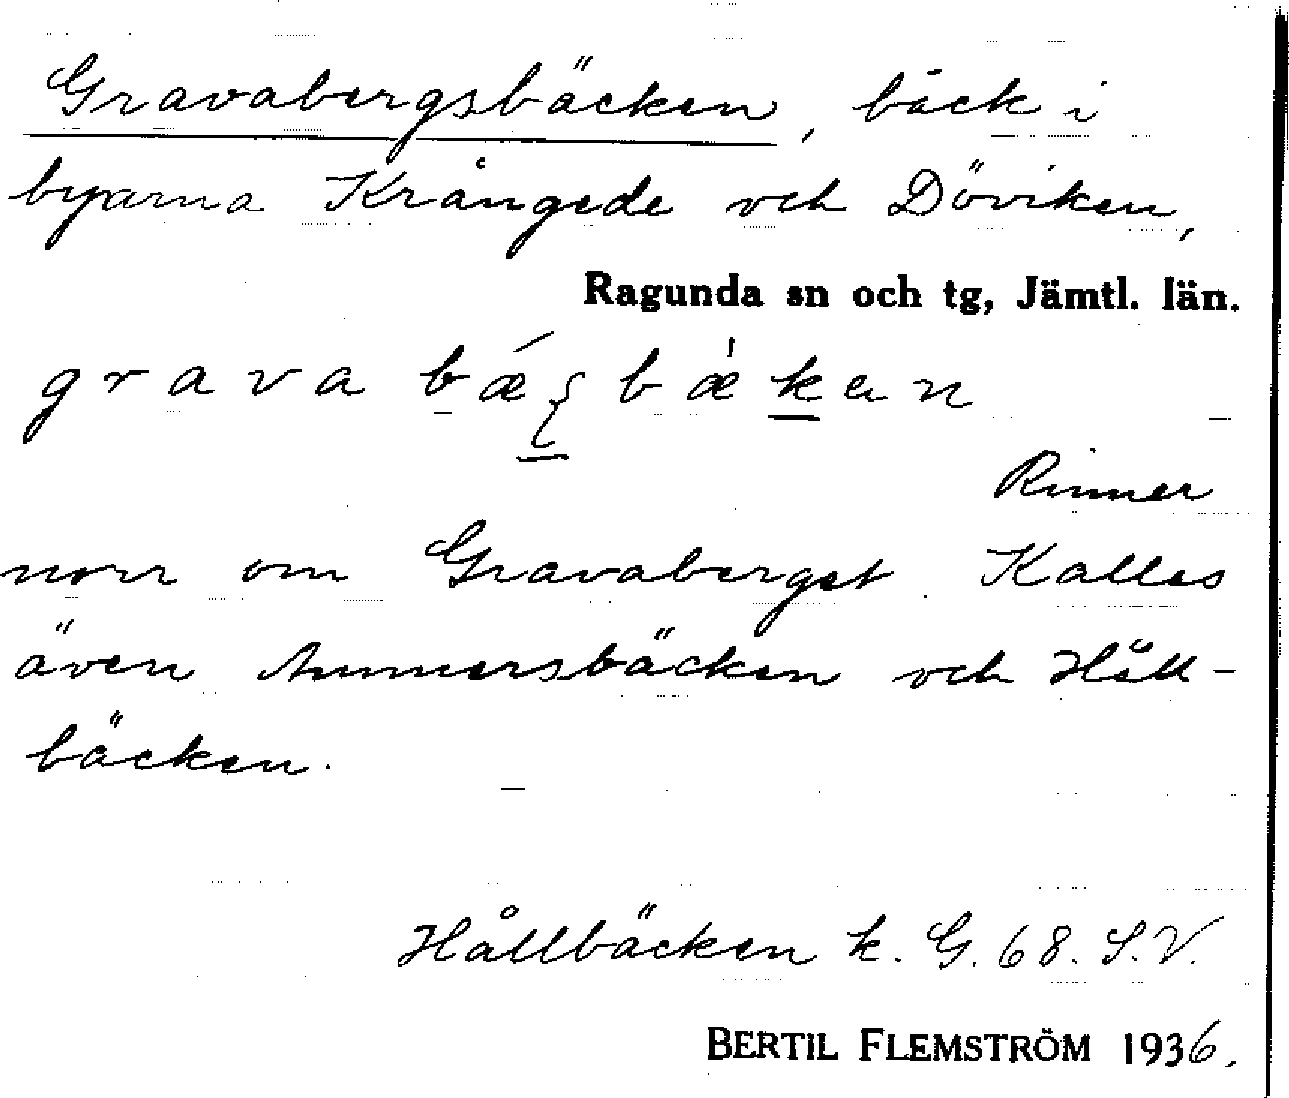 Gravabergsbäcken, bäck i
byarna Krångede och Döviken,
Ragunda sn och tg, Jämtl. län.
grava bǽ bæ̍ken
Rinner
norr om Gravaberget. Kallas
även Ammersbäcken och Håll-
bäcken.
Hållbäcken k. G. 68. S.V.
BERTIL FLEMSTRÖM 1936.